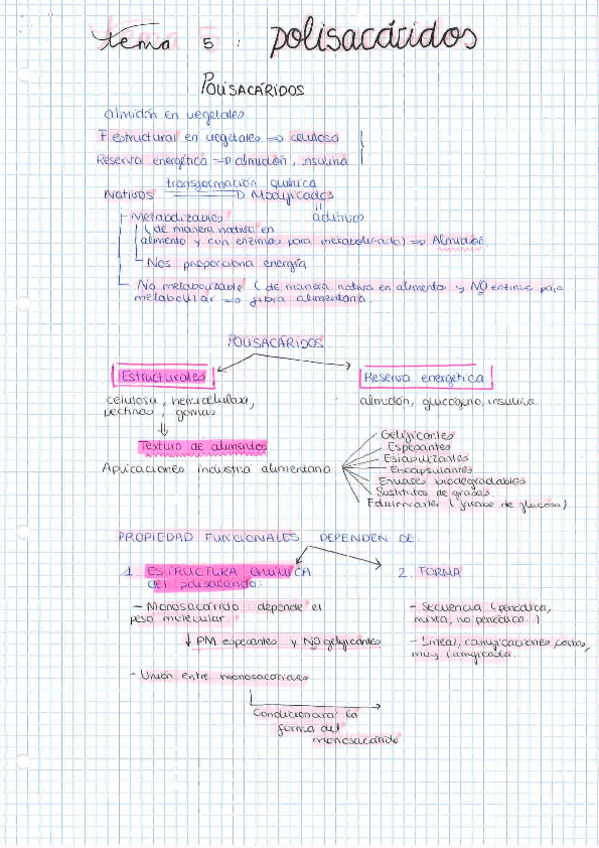 tema 5 : polisacáridos
POLISACÁRIDOS
almidón en vegetales
F estructural en vegetales => celulosa
Reserva energética => almidón, insulina
transformación química
Nativos => Modificados
aditivos
Metabolizables
(de manera nativa en
alimento y con enzimas para metabolizarlo) => Almidón
Nos proporciona energía
No metabolizable (de manera nativa en alimentos y NO enzimas para
metabolizar => fibra alimentaria.
POLISACÁRIDOS
Estructurales
Reserva energética
celulosa, hemicelulosa,
pectinas, gomas
almidón, glucógeno, insulina
Textura de alimentos
Aplicaciones industria alimentaria
Gelificantes
Espesantes
Estabilizantes
Encapsulantes
Envases biodegradables
Sustitutos de grasas
Edulcorantes (jarabe de glucosa)
PROPIEDAD FUNCIONALES DEPENDEN DE
1. ESTRUCTURA QUÍMICA
del polisacárido:
2. FORMA
- Monosacárido: depende el
peso molecular
↓ PM espesantes y NO gelificantes
- Unión entre monosacáridos
Condicionará la
forma del
monosacárido
- Secuencia (periódica,
mixta, no periódica)
- Lineal, ramificaciones cortas,
muy ramificada.